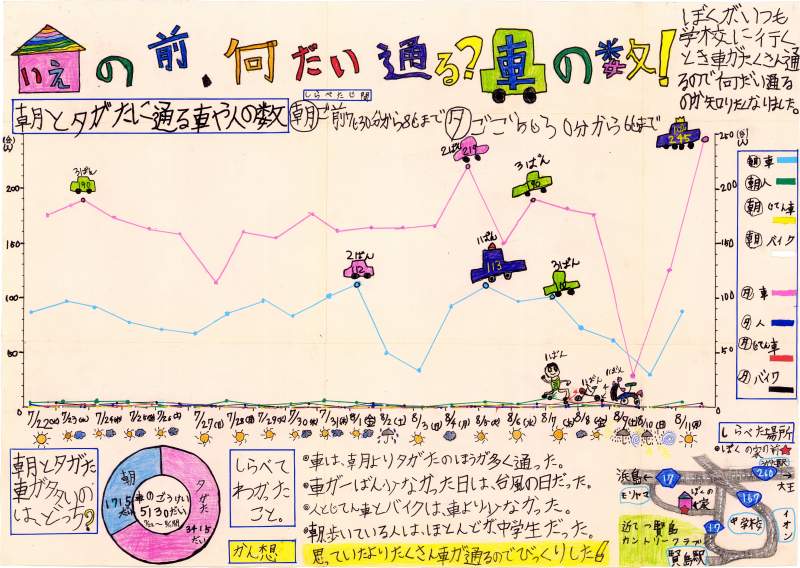 いえの前、何だい通る？車の数！
ぼくがいつも
学校に行く
とき車がたくさん通
るので何だい通る
のか知りたくなりました。
しらべた時間
朝と夕がたに通る車や人の数
朝 ご前7じ30分から8じまで
夕 ごご5じ30分から6じまで
(台)
200
150
100
50
(台)
250
200
150
100
50
3ばん
190
2ばん
219
3ばん
190
1ばん
245
2ばん
112
1ばん
113
3ばん
1ばん
1ばん
1ばん
朝 車
朝 人
朝 じてん車
朝 バイク
夕 車
夕 人
夕 じてん車
夕 バイク
7/22(火)
7/23(水)
7/24(木)
7/25(金)
7/26(土)
7/27(日)
7/28(月)
7/29(火)
7/30(水)
7/31(木)
8/1(金)
8/2(土)
8/3(日)
8/4(月)
8/5(火)
8/6(水)
8/7(木)
8/8(金)
8/9(土)
8/10(日)
8/11(月)
朝と夕がた
車がタタいの
は、どっち？
朝
1715
だい
夕がた
3415
だい
車のごうけい
5130だい
しらべて
わかった
こと。
●車は、朝より夕がたのほうが多く通った。
●車が一ばん少なかった日は、台風の日だった。
●人とじてん車とバイクは、車より少なかった。
●朝歩いている人は、ほとんどが中学生だった。
かん想
思っていたよりたくさん車が通るのでびっくりした
しらべた場所
●ぼくの家の前★
浜島
モリヤマ
17
260
167
17
大王
ぼくの
家
中学校
イオン
近てつ賢島
カントリークラブ
賢島駅